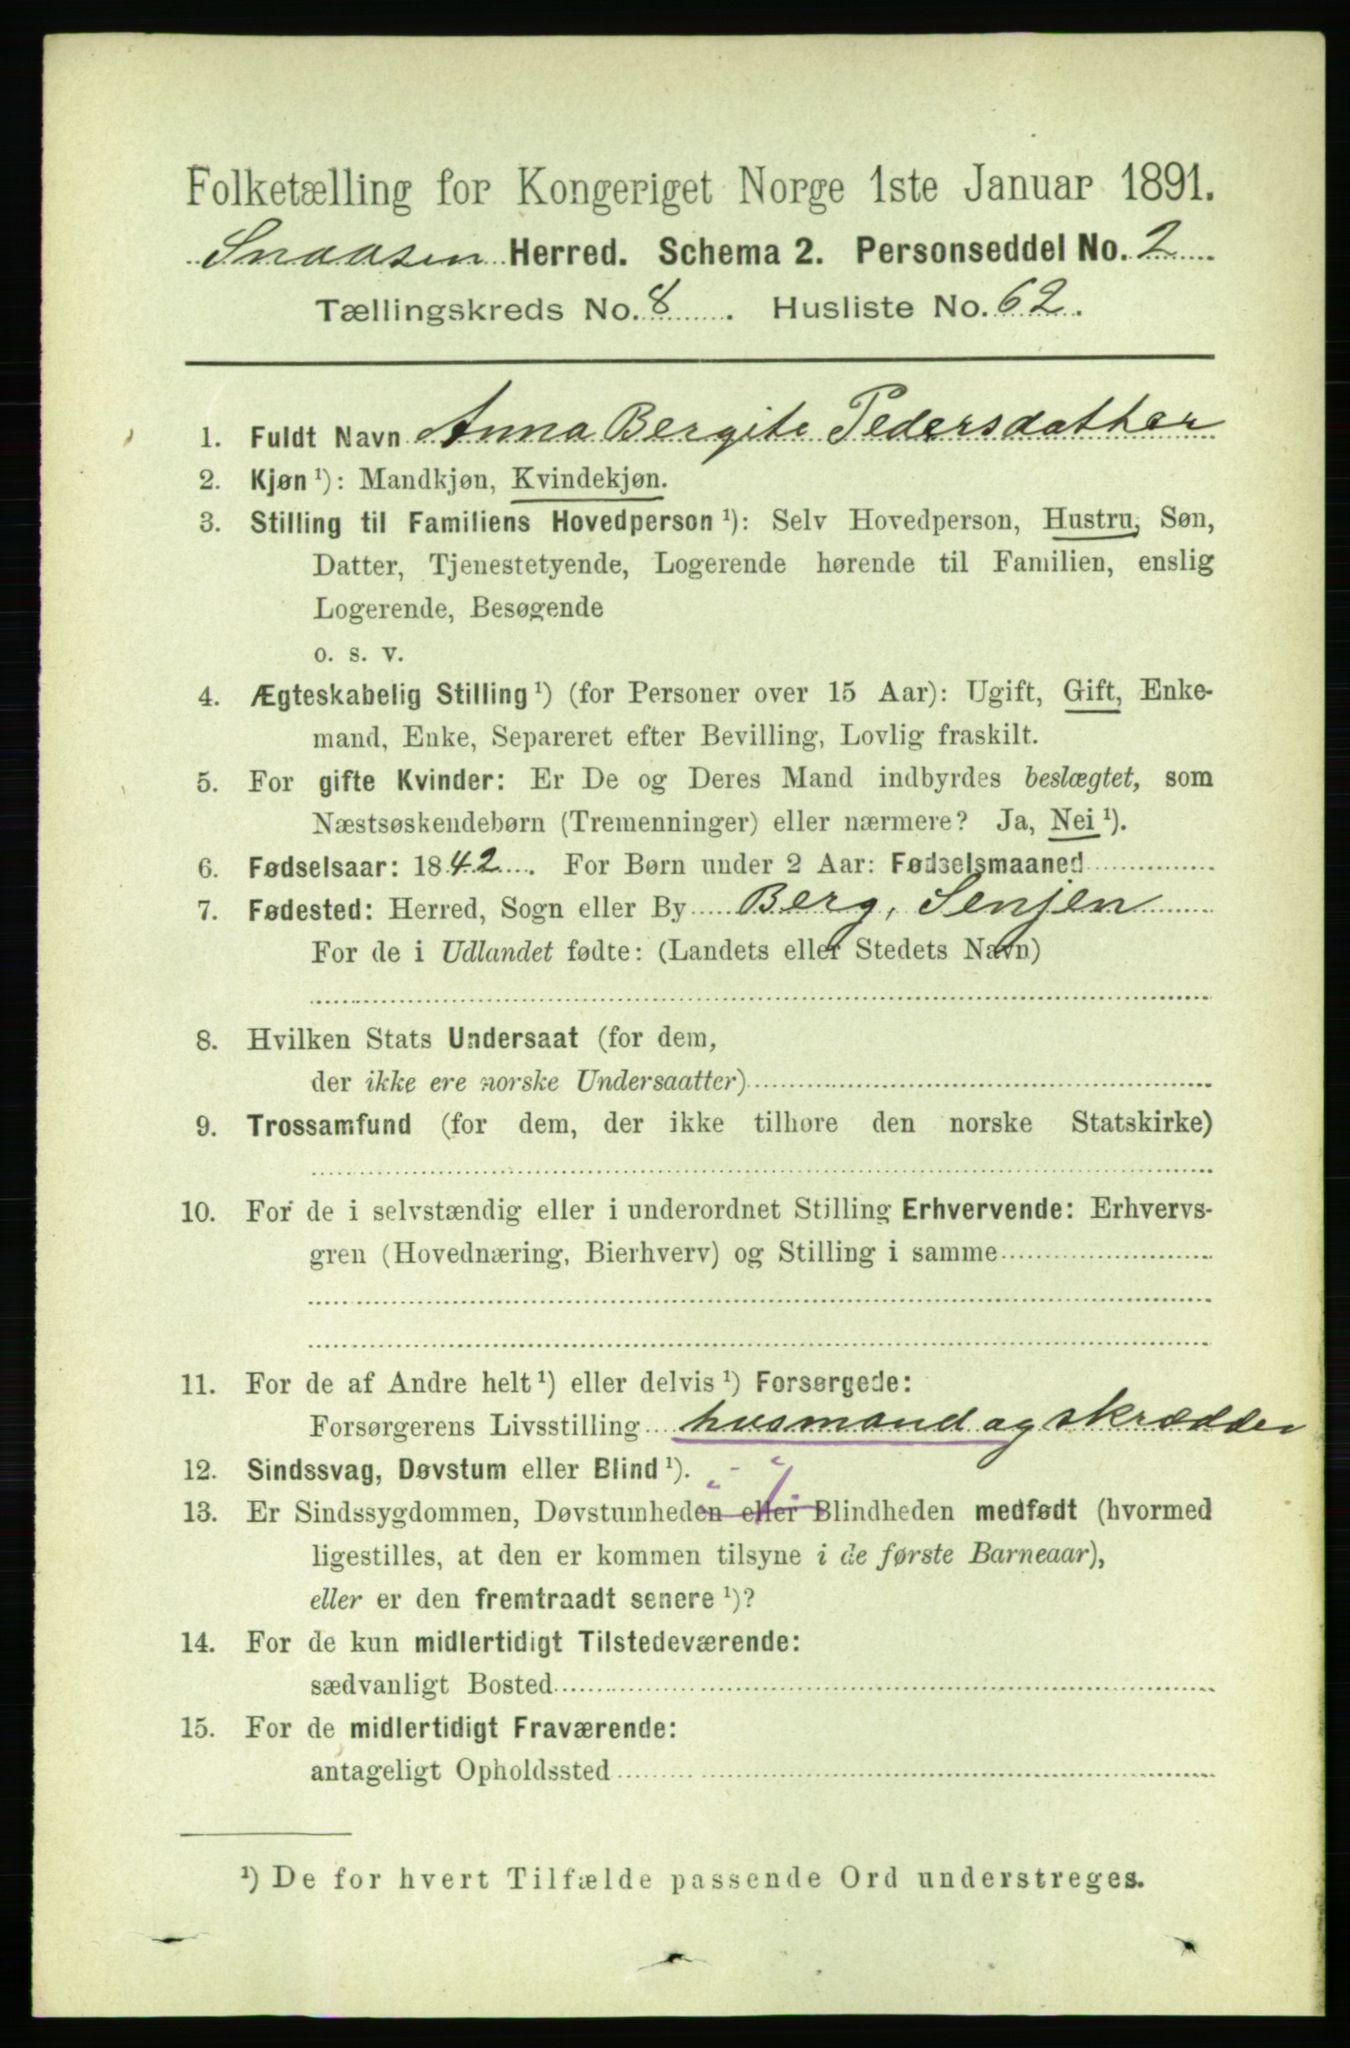 Folketælling for Kongeriget Norge 1ste Januar 1891.
Snaasen Herred. Schema 2. Personseddel No. 2
Tællingskreds No. 8. Husliste No. 62.
1. Fuldt Navn Anna Bergite Pedersdatter
2. Kjøn ¹): Mandkjøn, Kvindekjøn.
3. Stilling til Familiens Hovedperson ¹): Selv Hovedperson, Hustru, Søn,
Datter, Tjenestetyende, Logerende hørende til Familien, enslig
Logerende, Besøgende
o. s. v.
4. Ægteskabelig Stilling ¹) (for Personer over 15 Aar): Ugift, Gift, Enke-
mand, Enke, Separeret efter Bevilling, Lovlig fraskilt.
5. For gifte Kvinder: Er De og Deres Mand indbyrdes beslægtet, som
Næstsøskendebørn (Tremenninger) eller nærmere? Ja, Nei ¹).
6. Fødselsaar: 1842. For Børn under 2 Aar: Fødselsmaaned
7. Fødested: Herred, Sogn eller By Berg, Senjen
For de i Udlandet fødte: (Landets eller Stedets Navn)
8. Hvilken Stats Undersaat (for dem,
der ikke ere norske Undersaatter)
9. Trossamfund (for dem, der ikke tilhøre den norske Statskirke)
10. For de i selvstændig eller i underordnet Stilling Erhvervende: Erhvervs-
gren (Hovednæring, Bierhverv) og Stilling i samme
11. For de af Andre helt ¹) eller delvis ¹) Forsørgede:
Forsørgerens Livsstilling husmand og skrædder
12. Sindssvag, Døvstum eller Blind ¹).
13. Er Sindssygdommen, Døvstumheden eller Blindheden medfødt (hvormed
ligestilles, at den er kommen tilsyne i de første Barneaar),
eller er den fremtraadt senere ¹)?
14. For de kun midlertidigt Tilstedeværende:
sædvanligt Bosted
15. For de midlertidigt Fraværende:
antageligt Opholdssted
¹) De for hvert Tilfælde passende Ord understreges.